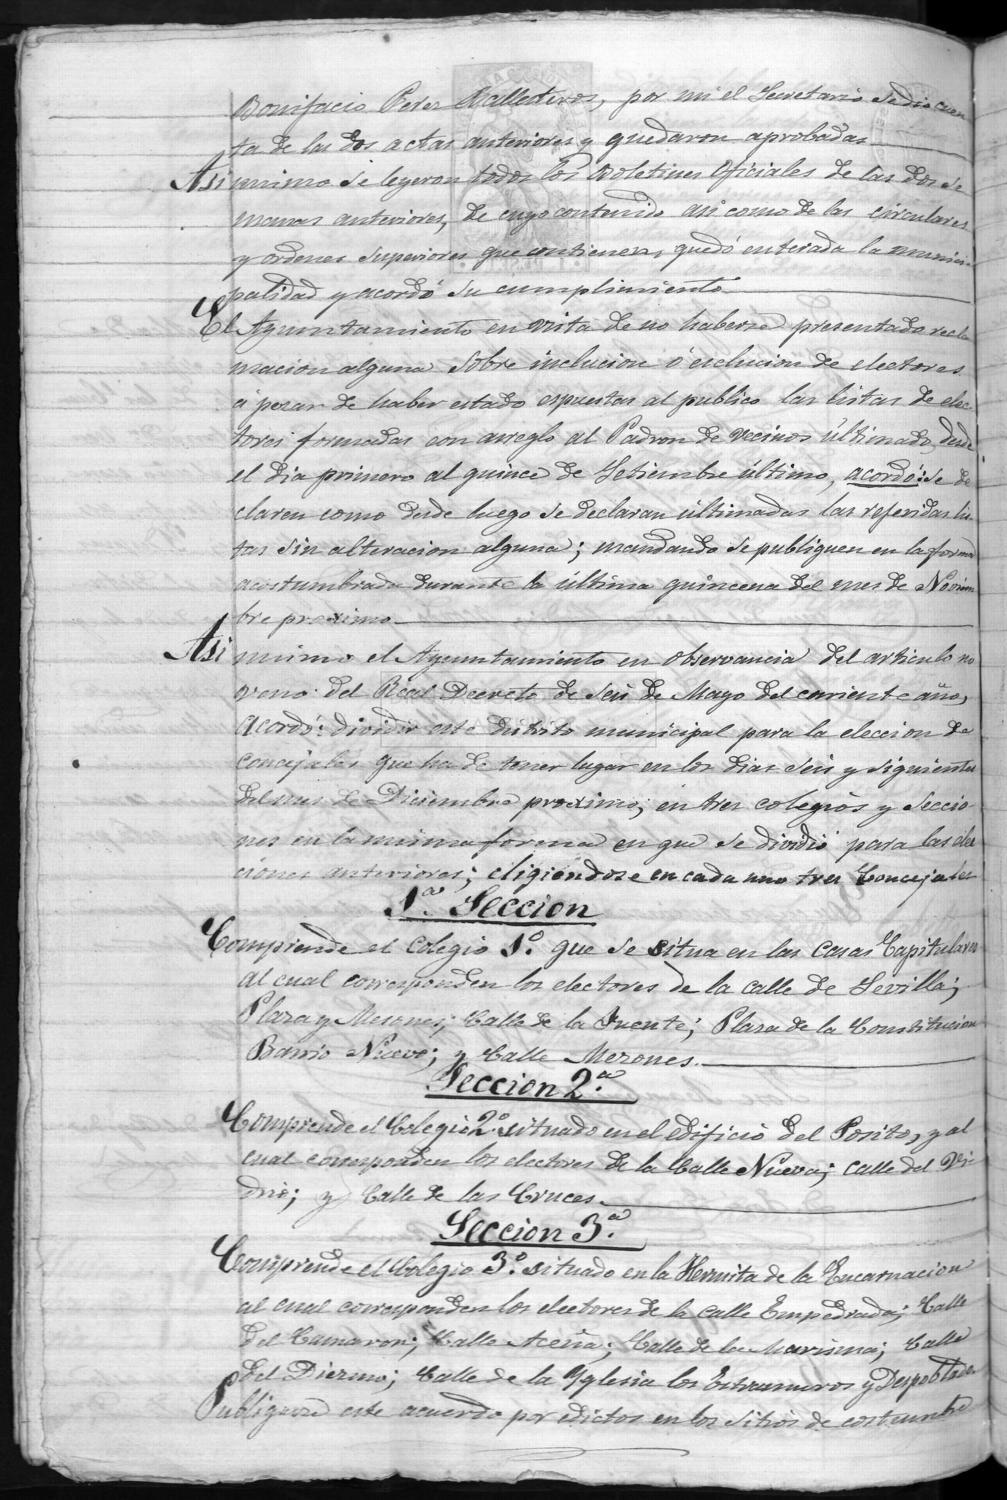 Bonifacio Perez Ballesteros, por mi el Secretario se dio cuen
ta de las dos actas anteriores y quedaron aprobadas
Asi mismo se leyeron todos los Boletines Oficiales de las dos se
manas anteriores, de cuyo contenido asi como de las circulares
y ordenes superiores que contienen, quedó enterada la munici
palidad y acordó su cumplimiento
El Ayuntamiento en vista de no haberse presentado recla
macion alguna sobre inclucion ó esclucion de electores
á pesar de haber estado espuestas al publico las listas de elec
tores formadas con arreglo al Padron de vecinos últimado, desde
el dia primero al quince de Setiembre último, acordó: se de
claren como desde luego se declaran últimadas las referidas lis
tas sin alteracion alguna; mandando se publiquen en la forma
acostumbrada durante la última quincena del mes de Noviem
bre proximo
Asi mismo el Ayuntamiento en observancia del articulo no
veno del Real Decreto de seis de Mayo del corriente año,
Acordó: dividir este distrito municipal para la eleccion de
concejales que ha de tener lugar en los dias seis y siguientes
del mes de Diciembre proximo; en tres colegios y seccio
nes en la misma forma en que se dividió para las elec
ciones anteriores; eligiéndose en cada uno tres Concejales
1.ª Seccion
Comprende el Colegio 1.º que se situa en las casas Capitulares
al cual corresponden los electores de la calle de Sevilla;
Plaza y Mesones; Calle de la Fuente; Plaza de la Constitucion
Barrio Nuevo; y Calle Merones.
Seccion 2.ª
Comprende el Colegio 2.º situado en el edificio del Posito, y al
cual corresponden los electores de la Calle Nueva; calle del Vi-
drio; y Calle de las Cruces.
Seccion 3.ª
Comprende el Colegio 3.º situado en la Hermita de la Encarnacion
al cual corresponden los electores de la calle Empedrada; Calle
del Camaron; Calle Aceña; Calle de la Marisma; Calle
del Diezmo; Calle de la Yglesia los Extramuros y Despoblado
Publiquese este acuerdo por edictos en los sitios de costumbre